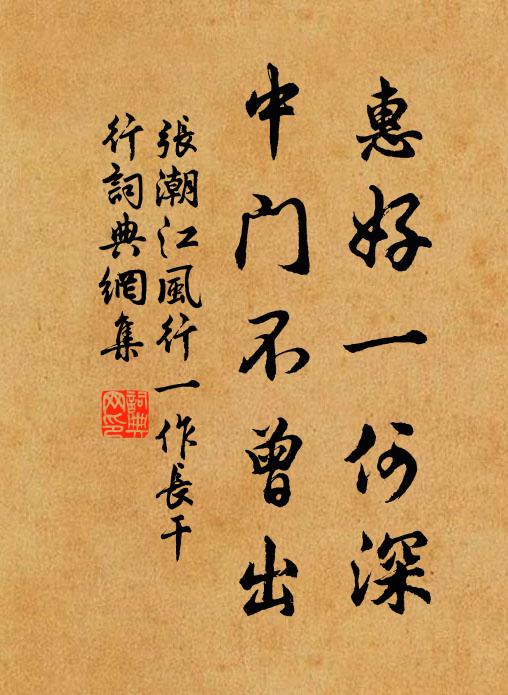 惠好一何深
中门不曾出
張潮江風行一作長干
行詞典網集
詞典
网印